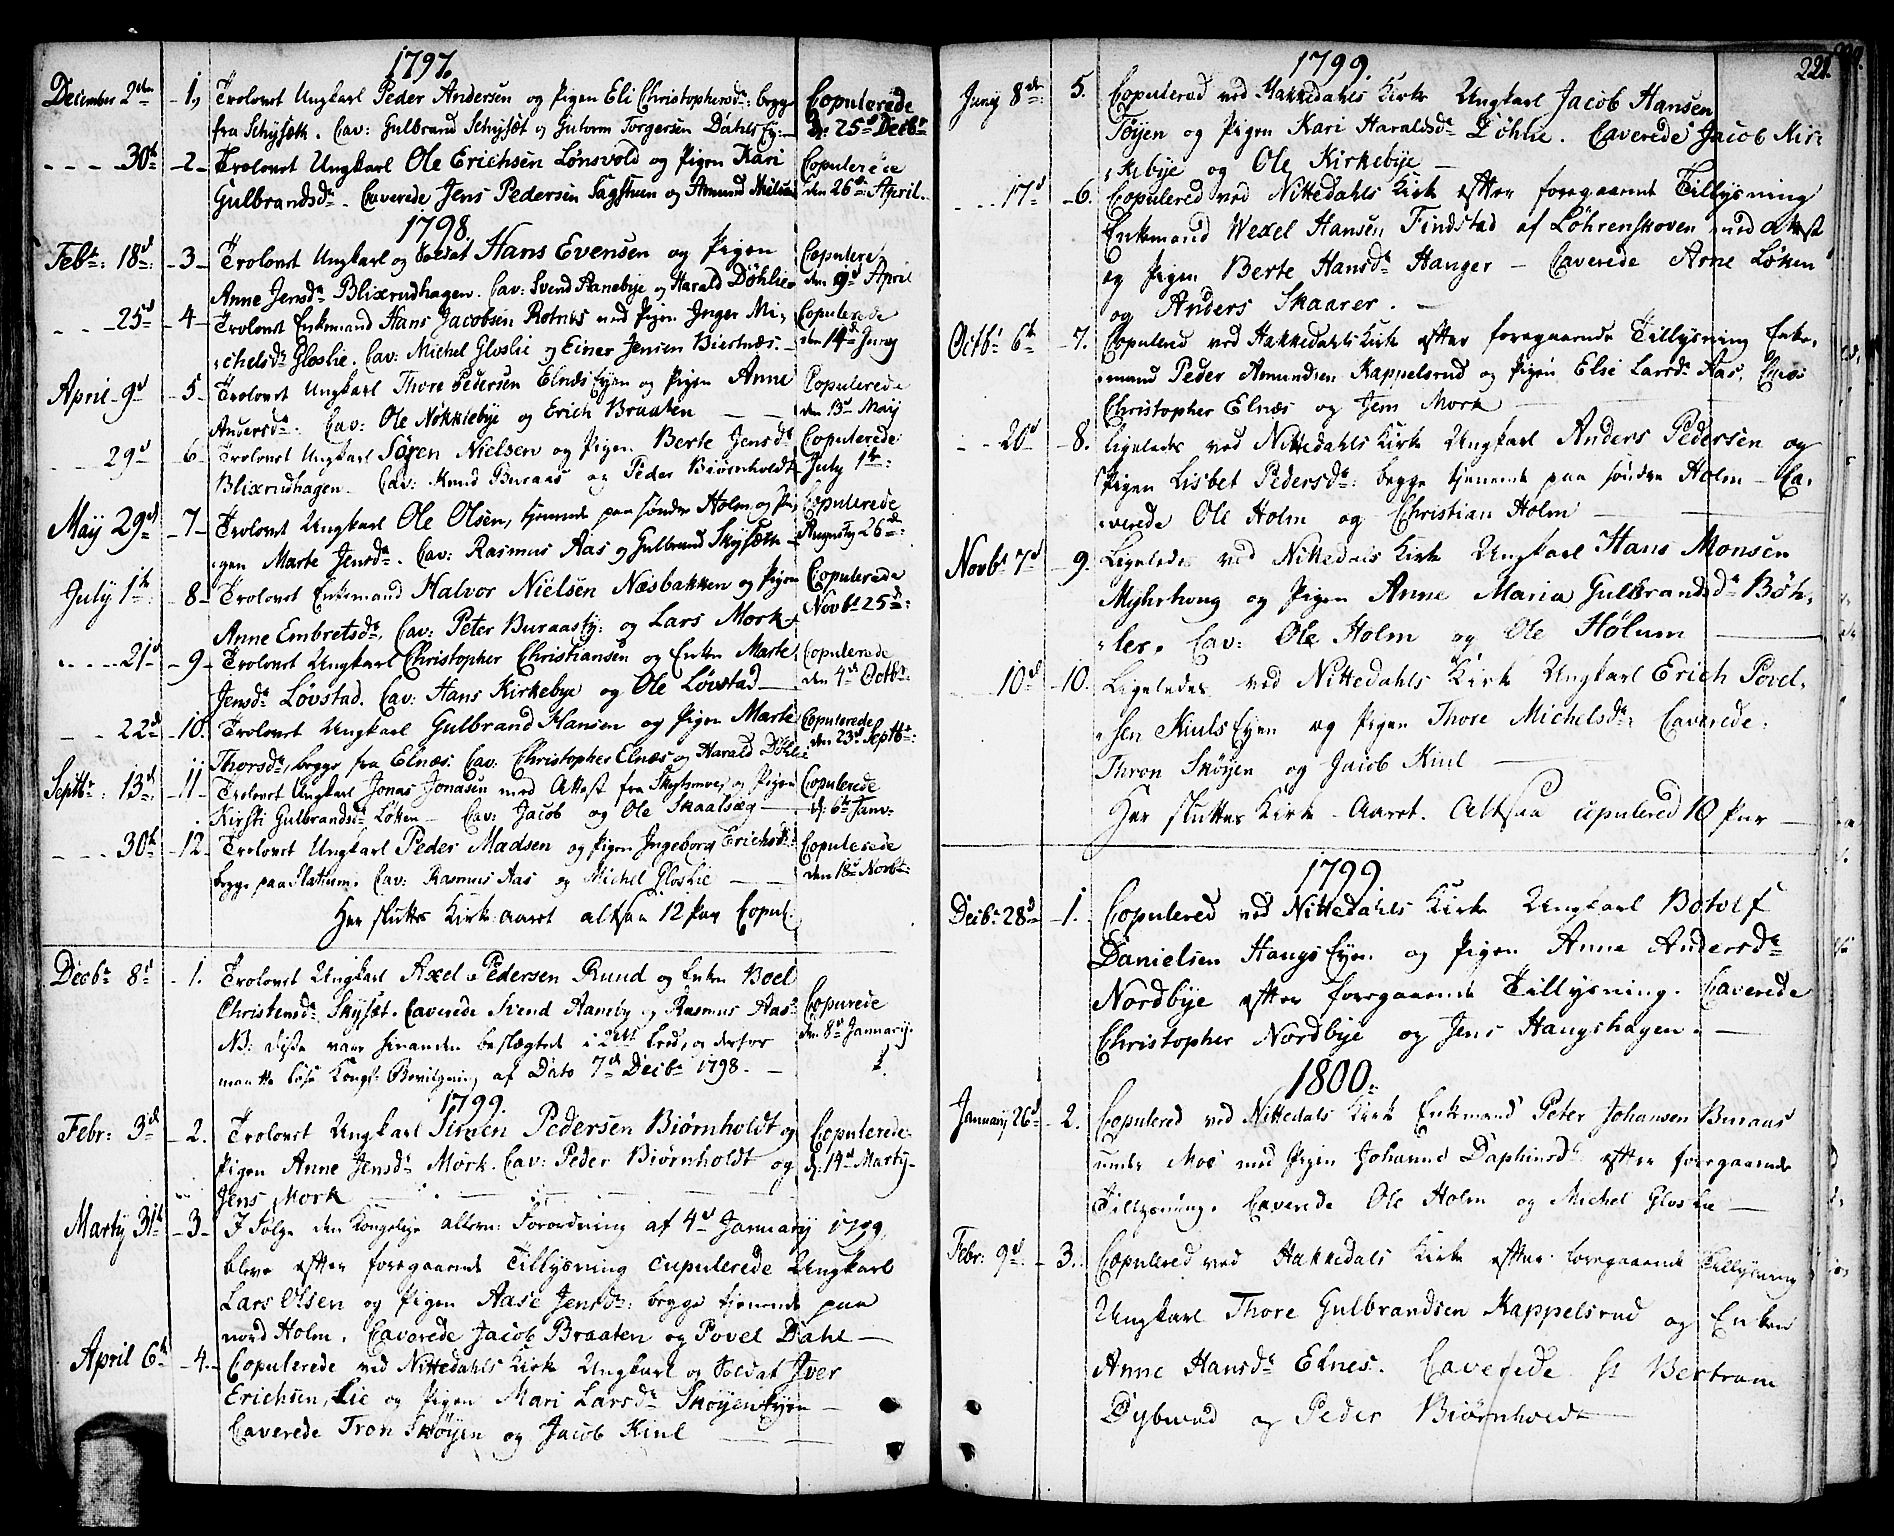 1797.
December 2den -1., Trolovet Ungkarl Peder Andersen og Pigen Eli Christophersdr: begge Copulerede
fra Schÿsæth. Cav: Gulbrand Schÿsæt og Gutorm Torgersen Dahls Ey: D: 25d Decbr
- - - 30th -2- Trolovet Ungkarl Ole Erichsen Lønsvold og Pigen Kari Copulerede
Gulbrandsdr. Caverede Jens Pedersen Sagstuen og Amund Nielsen den 26d April.
1798.
Febr: 18d: -3- Trolovet Ungkarl og Soldat Hans Evensen og Pigen Copulere:
Anne Jensdr Blixrudhagen. Cav: Svend Aanebye og Harald Døhlie den 9d April
- - - 25d -4- Trolovet Enkemand Hans Jacobsen Rotnes med Pigen Inger Mi: Copulerede
:chelsdr Gloslie. Cav: Michel Gloslie og Einer Jensen Biertnæs. den 14d Junÿ
April 9d -5- Trolovet Ungkarl Thore Pedersen Elnæs Eyen og Pigen Anne Copulerede
Andersdr. Cav: Ole Nøkklebye og Erich Braaten - - den 13d May
- - - 29d 6- Trolovet Ungkarl Søren Nielsen og Pigen Berte Jensdr Copulerede
Blixrudhagen- Cav: Knud Buraas og Peder Biørnholdt July 1ste:
Maÿ 29d -7- Trolovet Ungkarl Ole Olsen, tjenende paa søndre Holm og Pi: Copulerede
gen Marte Jensdr. Cav: Rasmus Aas og Gulbrand Skÿsæth - Augusty 26de:
July 1th 8- Trolovet Enkemand Halvor Nielsen Næsbakken og Pigen Copulerede
Anne Embretsdr. Cav: Peter Buraasey: og Lars Mork Novbr 25d:
- - - 21d -9- Trolovet Ungkarl Christopher Christiansen og Enken Marte Copulerede
Jensdr Lovstad. Cav: Hans Kirkebye og Ole Løvstad- den 4d Octbr:
- - 22d -10. Trolovet Ungkarl Gulbrand Hansen og Pigen Marte Copulerede
Thorsdr, begge fra Elnæs. Cav: Christopher Elnæs og Harald Døhlie den 23d Septbr:
Septbr: 13d -11- Trolovet Ungkarl Jonas Jonasen med Attest fra og Pigen Copulerede
Kirsti Gulbrandsdr Løken - Cav: Jacob og Ole Skaalsæg d: 6th Janv-
- - - 30th -12. Trolovet Ungkarl Peder Madsen og Pigen Ingeborg Erichsdr: Copulerede
begge paa Slattum. Cav: Rasmus Aas og Michel Gloslie - - den 18d Novbr
Her sluttes Kirke-Aaret altsaa 12 Par Copul:
Decbr 8d -1. Trolovet Ungkarl Axel Pedersen Ruud og Enken Boel
Christensdr Skÿsæt. Caverede Svend Aaneby og Rasmus Aas: Copurede
NB: disse vare hinanden beslægtede i 2det Led, og derfor den 8d Januarÿ.
maatte løse Kongl: Bevilgning af Dato 7d Decbr 1798. -
1799.
Febr: 3d -2. Trolovet Ungkarl Simen Pedersen Biørnholdt og Copulerede
Pigen Anne Jensdr Mørk. Cav: Peder Biørnholdt og d: 14d Marty-
Jens Mork
Marty 31te -3- I Følge den Kongelige allern: Forordning af 4d Januarÿ 1799.
bleve efter foregaaende Tillysning cupulerede Ungkarl
Lars Olsen og Pigen Aase Jensdr: begge tjenende paa
nord Holm. Caverede Jacob Braaten og Povel Dahl-
April 6th -4- Copulerede ved Nittedahls Kirke Ungkarl og Soldat Iver
Erichsen, Lie og Pigen Mari Larsdr Skøyen Eyen -
Caverede Tron Skøÿen og Jacob Kiul - -

1799. 221.
Junÿ 8de: 5. Copulered ved Hakkedahls Kirke Ungkarl Jacob Hansen
Tøÿen og Pigen Kari Haraldsdr Døhlie. Caverede Jacob Kir:
:kebye og Ole Kirkebÿe -
- - 17d -6. Copulered ved Nittedahls Kirke efter foregaaende Tillysning
Enkemand Wexel Hansen Findstad af Løhrenskoven med Attest
og Pigen Berte Hansdr Hanger - Caverede Arne Løken
og Anders Skaarer. -
Octbr 6th -7. Copulered ved Hakkedahls Kirke efter foregaaende Tillysning Enke:
:mand Peder Amundsen Kappelsrud og Pigen Elie Larsdr Aas. Cav:
Christopher Elnæs og Jens Mork
- - 20d -8. Ligeledes ved Nittedahls Kirke Ungkarl Anders Pedersen og
Pigen Lisbet Pedersdr: begge tjenende paa søndre Holm - Ca:
:verede Ole Holm og Christian Holm -
Novbr 7d -9. Ligeledes ved Nittedals Kirke Ungkarl Hans Monsen
Myhrhoug og Pigen Anne Maria Gulbrandsdr Bøh:
:ler. Cav: Ole Holm og Ole Hølum
10d -10. Ligeledes ved Nittedahls Kirke Ungkarl Erich Povel:
:sen Kiuls Eyen og Pigen Thore Michelsdr: Caverede:
Thron Skøÿen og Jacob Kiul -
Her sluttes Kirke-Aaret. Altsaa cupulered 10 Par
1799
Decbr 28d -1. Copulered ved Nittedahls Kirke Ungkarl Botolf
Danielsen Haugs Eyen og Pigen Anne Andersdr
Nordbÿe efter foregaaende Tillysning. Caverede
Christopher Nordbÿe og Jens Haugshagen. -
1800.
Januarÿ 26d -2. Copulered ved Nittedals Kirke Enkemand Peter Johansen Buraas
under Moe med Pigen Johanne Daphinsdr efter foregaaende
Tillysning. Caverede Ole Holm og Michel Gloslie -
Febr: 9d: -3. Copulered ved Hakkedals Kirke efter foregaaende Tillysning
Ungkarl Thore Gulbrandsen Kappelsrud og Enken
Anne Hansdr Elnes. Caverede Bertram
Dybwad og Peder Biørnholdt